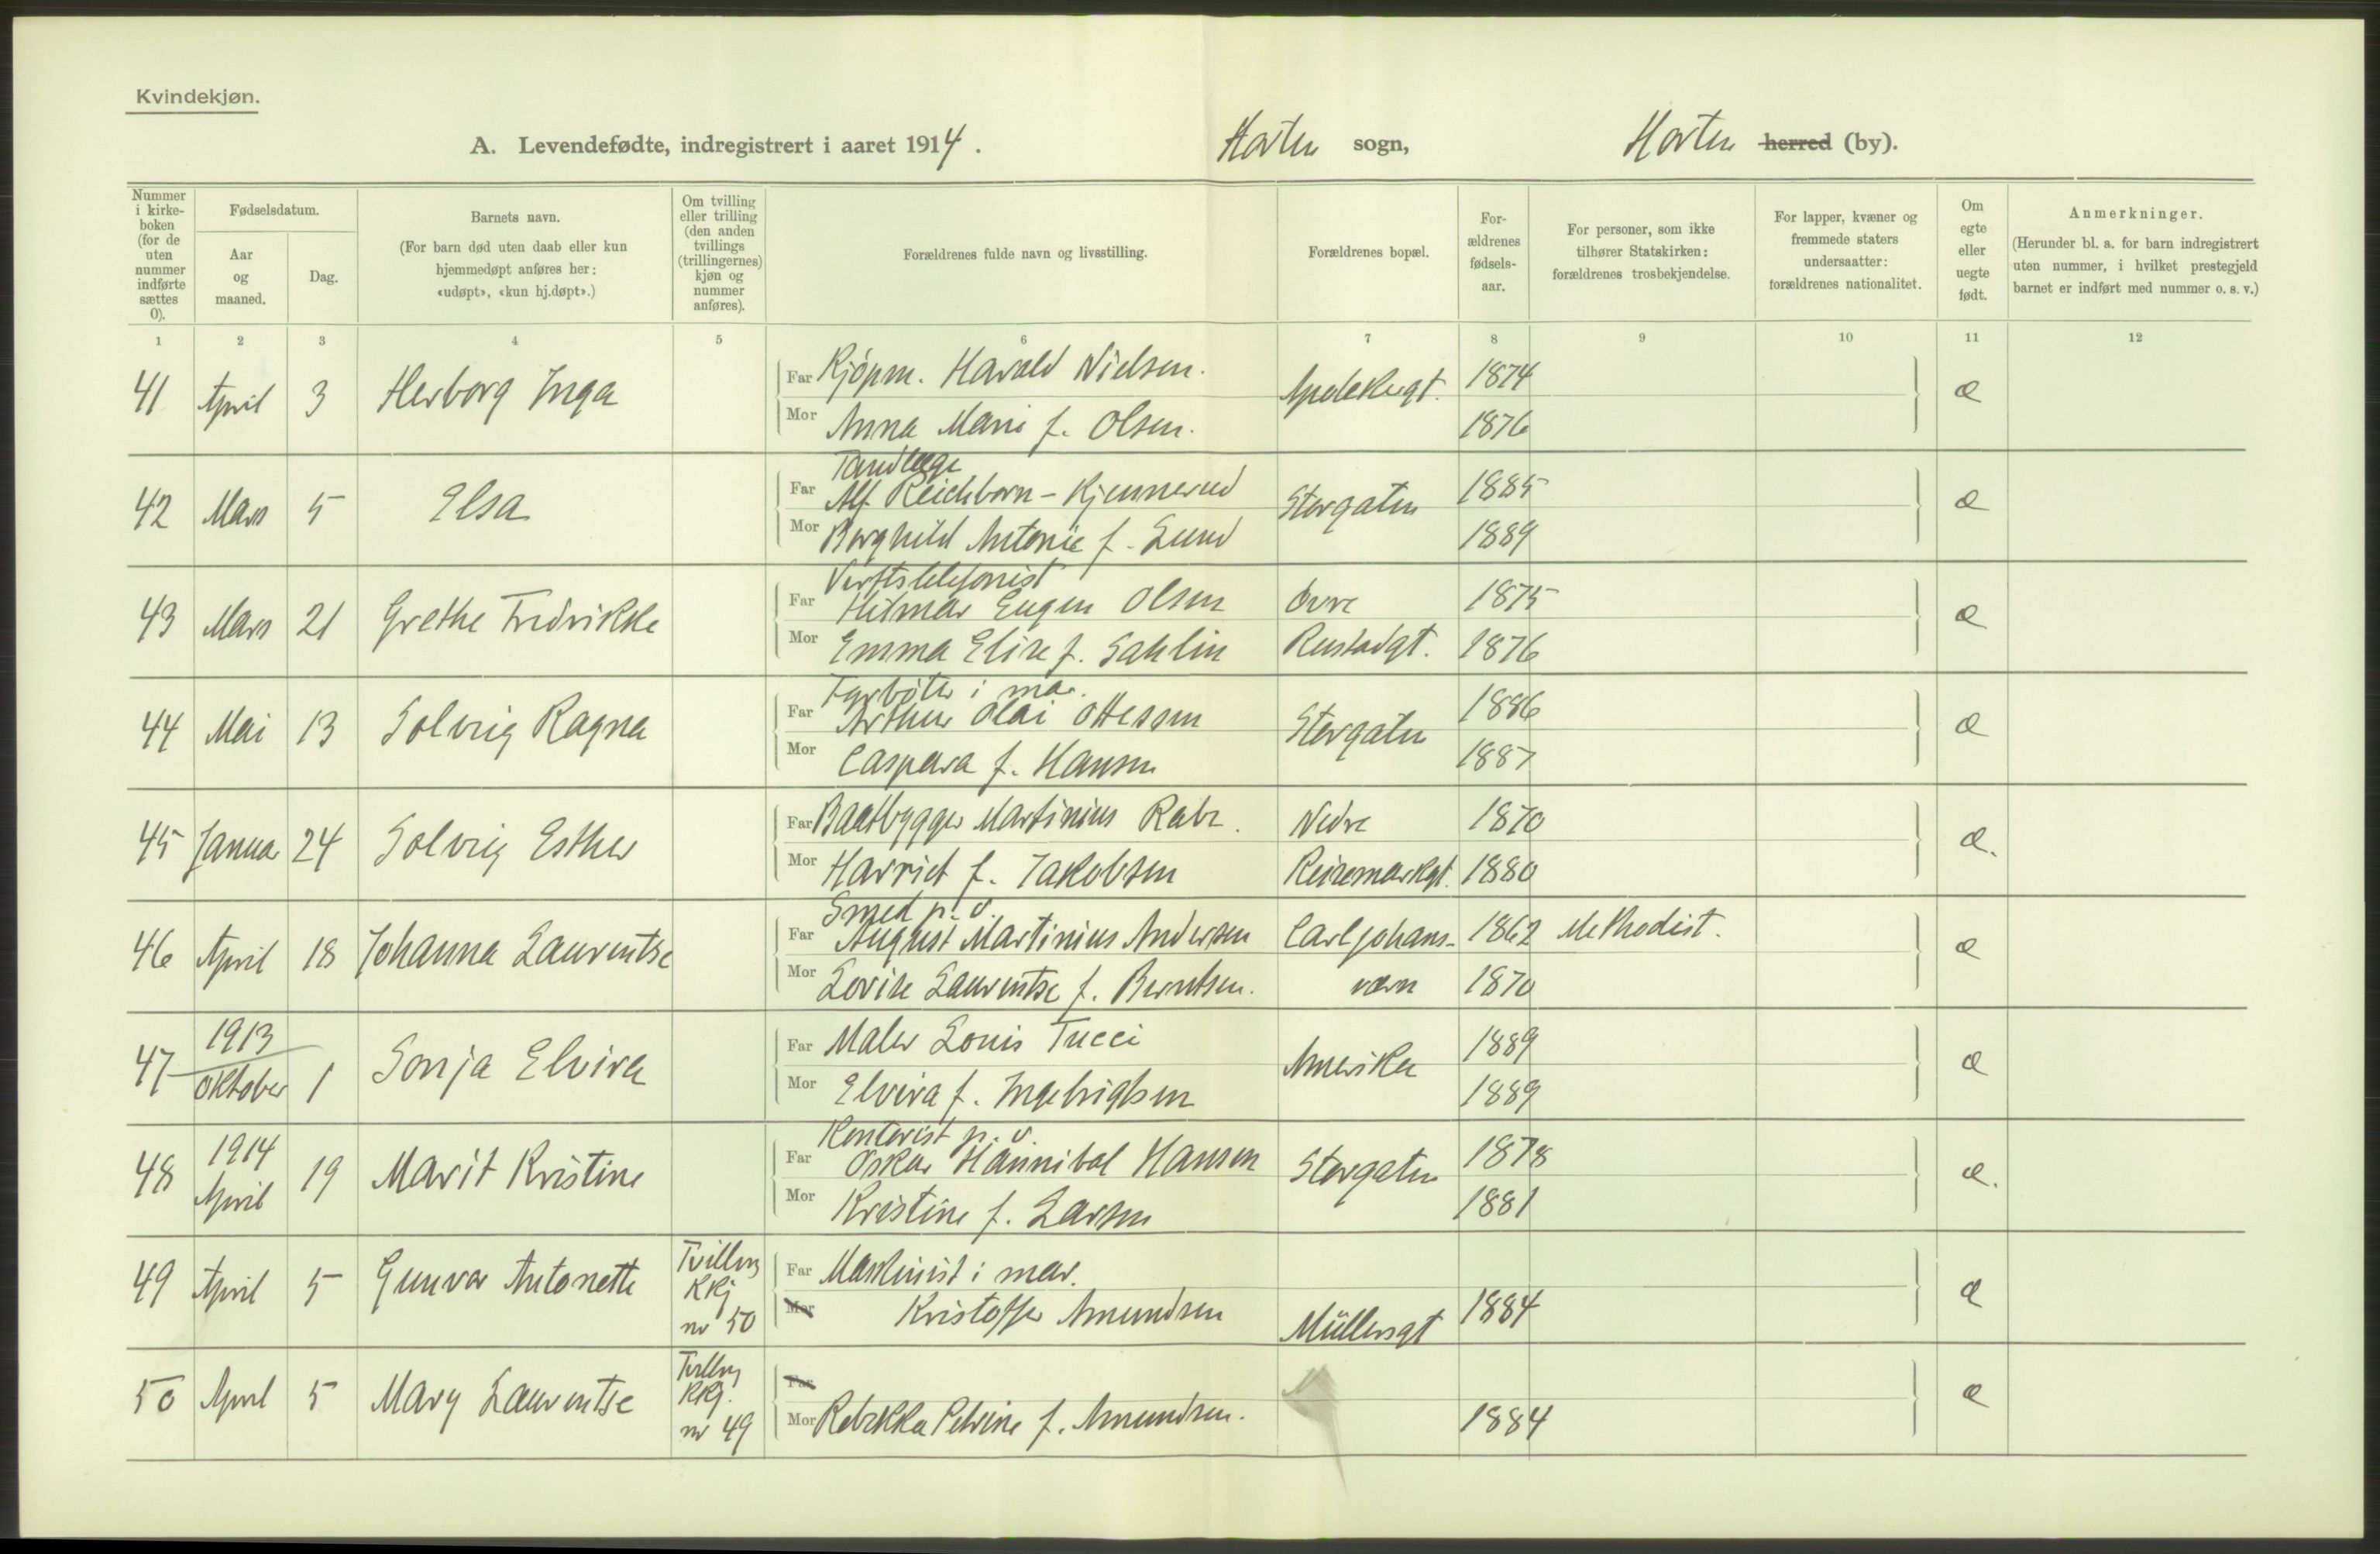 Kvindekjøn.
A. Levendefødte, indregistrert i aaret 1914. Horten sogn, Horten herred (by).
Nummer i kirke-boken (for de uten nummer indførte sættes 0).
Fødselsdatum.
Aar og maaned.
Dag.
Barnets navn.
(For barn død uten daab eller kun hjemmedøpt anføres her: «udøpt», «kun hj.døpt».)
Om tvilling eller trilling (den anden tvillings (trillingernes) kjøn og nummer anføres).
Forældrenes fulde navn og livsstilling.
Forældrenes bopæl.
For-ældrenes fødsels-aar.
For personer, som ikke tilhører Statskirken: forældrenes trosbekjendelse.
For lapper, kvæner og fremmede staters undersaatter: forældrenes nationalitet.
Om egte eller uegte født.
Anmerkninger.
(Herunder bl. a. for barn indregistrert uten nummer, i hvilket prestegjeld barnet er indført med nummer o. s. v.)
1 2 3 4 5 6 7 8 9 10 11 12
41 April 3 Herborg Inga Far Kjøpm. Harald Nielsen. Apotekergt. 1874 æ
Mor Anna Marie f. Olsen. 1876
Tandlæge
42 Mars 5 Elsa Far Alf Reichborn-Kjennerud Storgaten 1885 æ
Mor Borghild Antonie f. Lund 1889
Verftstelefonist
43 Mars 21 Grethe Fredrikke Far Hilmar Eugen Olsen Øvre 1875 æ
Mor Emma Elise f. Sahlin Rustadgt. 1876
Fyrbøter i mar.
44 Mai 13 Solveig Ragna Far Arthur Olai Ottesen Storgaten 1886 æ
Mor Caspara f. Hansen 1887
45 Januar 24 Solveig Esther Far Baatbygger Martinius Rabe. Nedre 1870 æ.
Mor Harriet f. Jakobsen Keisemarkgt. 1880
Smed p. v.
46 April 18 Johanna Laurentse Far August Martinius Andersen Carljohans- 1862 Methodist. æ
Mor Lovise Laurentse f. Berntsen. værn 1870
1913
47 Oktober 1 Sonja Elvira Far Maler Louis Tucci Amerika 1889 æ
Mor Elvira f. Ingebrigtsen 1889
Kontorist p. v.
1914
48 April 19 Marit Kristine Far Oskar Hannibal Hansen Storgaten 1878 æ.
Mor Kristine f. Larsen 1881
49 April 5 Gunvor Antonette Tvilling Kkj nr 50 Far Maskinist i mar. æ
Mor Kristoffer Amundsen Müllersgt 1884
50 April 5 Mary Laurentse Tvilling Kkj. nr 49 Far æ
Mor Rebekka Petrine f. Amundsen. 1884